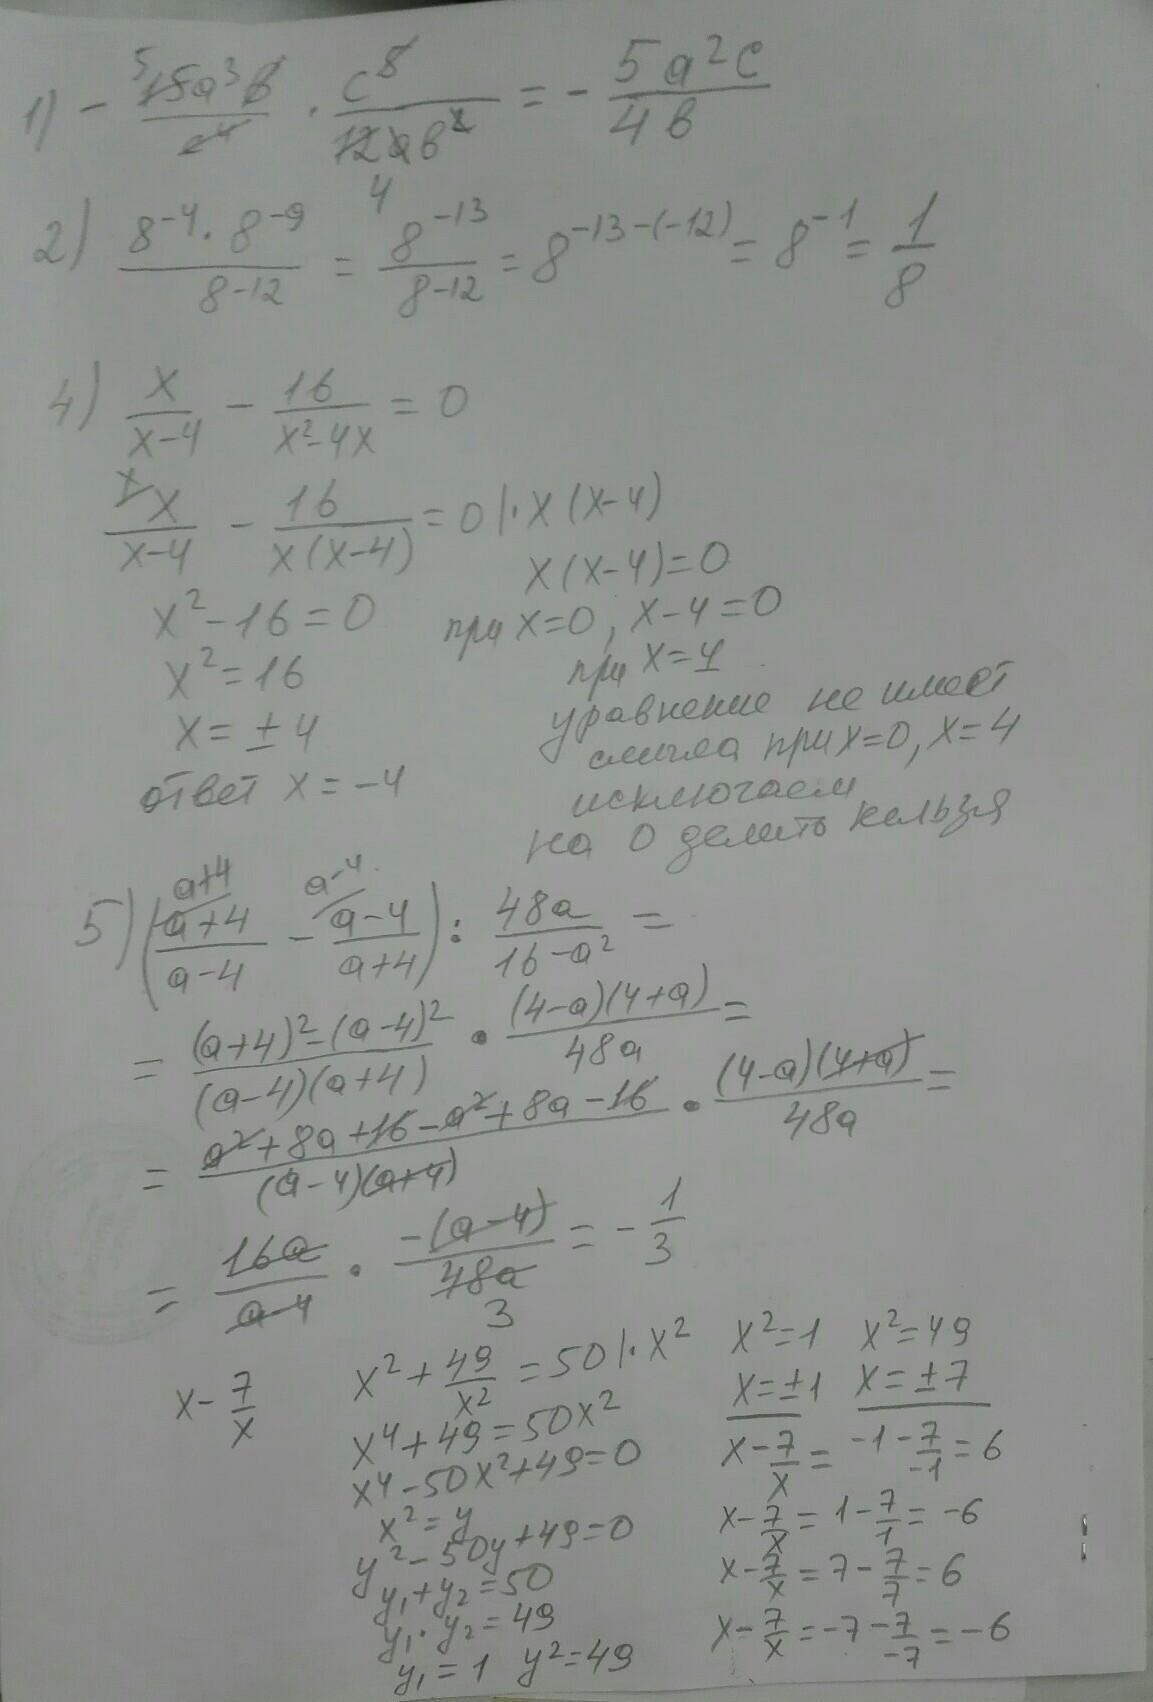 1) - 5 15a³b / c⁴ · c⁵ / 12ab² = - 5a²c / 4b
4
2) 8⁻⁴ · 8⁻⁹ / 8⁻¹² = 8⁻¹³ / 8⁻¹² = 8⁻¹³⁻⁽⁻¹²⁾ = 8⁻¹ = 1/8
4) x / x-4 - 16 / x²-4x = 0
x x / x-4 - 16 / x(x-4) = 0 |· x(x-4)
x(x-4)=0
x²-16=0 при x=0, x-4=0
x²=16 при x=4
x=±4 уравнение не имеет
смысла при x=0, x=4
ответ x=-4 исключаем
на 0 делить нельзя
a+4 a-4
5) (a+4 / a-4 - a-4 / a+4) : 48a / 16-a² =
= (a+4)²-(a-4)² / (a-4)(a+4) · (4-a)(4+a) / 48a =
= a²+8a+16-a²+8a-16 / (a-4)(a+4) · (4-a)(4+a) / 48a =
= 16a / a-4 · -(a-4) / 48a = - 1/3
3
x - 7/x x² + 49/x² = 50 |· x² x²=1 x²=49
x⁴+49=50x² x=±1 x=±7
x⁴-50x²+49=0 x - 7/x = -1 - 7/-1 = 6
x²=y x - 7/x = 1 - 7/1 = -6
y²-50y+49=0
y₁+y₂=50 x - 7/x = 7 - 7/7 = 6
y₁·y₂=49 x - 7/x = -7 - 7/-7 = -6
y₁=1 y²=49